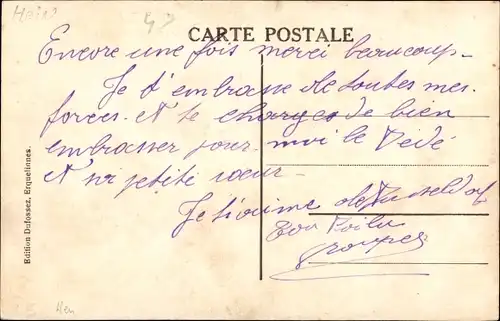 CARTE POSTALE
Encore une fois merci beaucoup.
Je t'embrasse de toutes mes
forces. Et te charges de bien
embrasser pour moi le Dédé
Et sa petite sœur.
Je t'aime
Ton Poilu
Edition Dufossez, Erquelinnes.